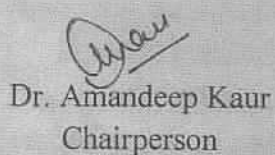 Dr. Amandeep Kaur
Chairperson